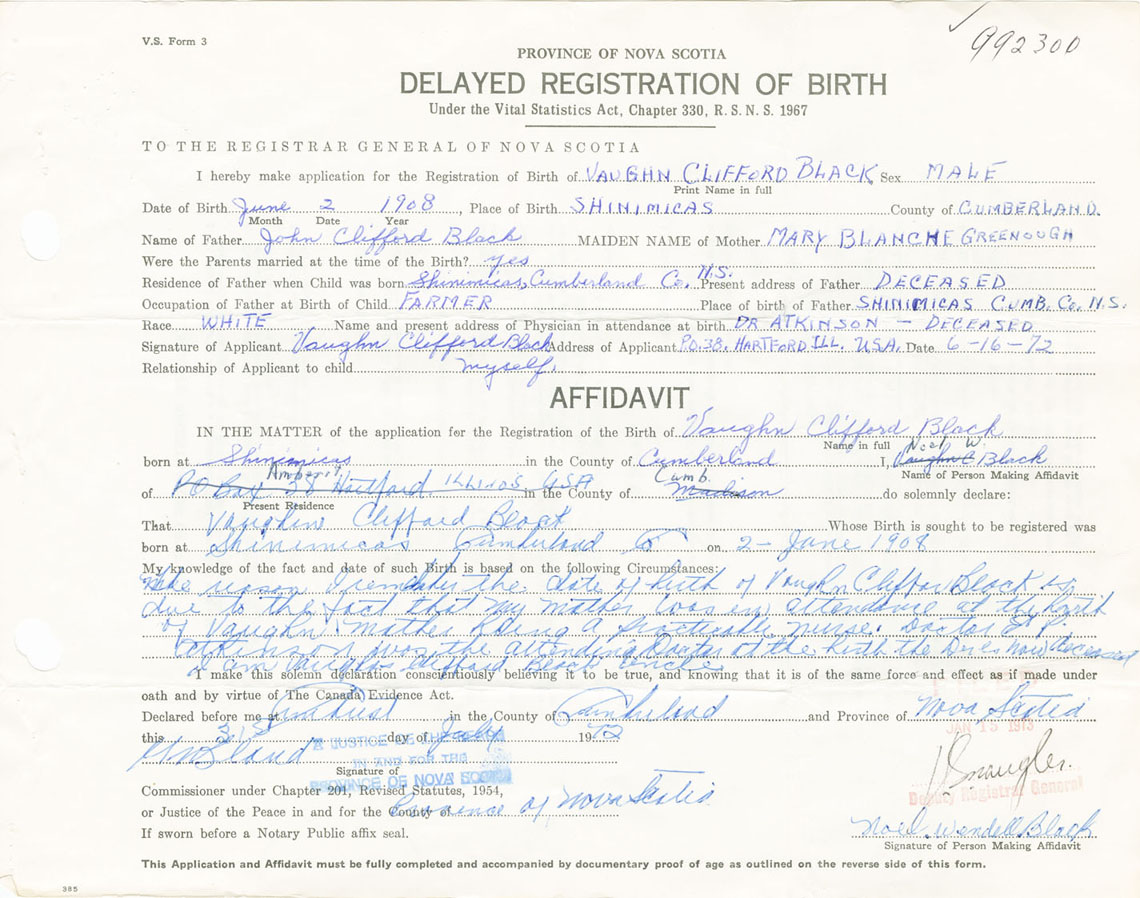 V.S. Form 3
992300
PROVINCE OF NOVA SCOTIA
DELAYED REGISTRATION OF BIRTH
Under the Vital Statistics Act, Chapter 330, R.S.N.S. 1967
TO THE REGISTRAR GENERAL OF NOVA SCOTIA
I hereby make application for the Registration of Birth of VAUGHN CLIFFORD BLACK Sex MALE
Print Name in full
Date of Birth June 2 1908, Place of Birth SHINIMICAS County of CUMBERLAND.
Month Date Year
Name of Father John Clifford Black MAIDEN NAME of Mother MARY BLANCHE GREENOUGH
Were the Parents married at the time of the Birth? yes
Residence of Father when Child was born Shinimicas, Cumberland Co. N.S. Present address of Father DECEASED
Occupation of Father at Birth of Child FARMER Place of birth of Father SHINIMICAS CUMB. Co. N.S.
Race WHITE Name and present address of Physician in attendance at birth DR ATKINSON — DECEASED
Signature of Applicant Vaughn Clifford Black Address of Applicant P.O. 38, HARTFORD ILL. USA. Date 6-16-72
Relationship of Applicant to child myself.
AFFIDAVIT
IN THE MATTER of the application for the Registration of the Birth of Vaughn Clifford Black
Name in full Noel W
born at Shinimicas in the County of Cumberland I, Vaughn C Black
Amherst Cumb. Name of Person Making Affidavit
of PO Box 38 Hartford ILLINOS USA in the County of Madison do solemnly declare:
Present Residence
That Vaughn Clifford Black Whose Birth is sought to be registered was
born at Shinimicas Cumberland Co on 2 - June 1908
My knowledge of the fact and date of such Birth is based on the following Circumstances:
The reason I remember the date of birth of Vaughn Cliffor Black is
due to the fact that my mother was in attendance at the birth
of Vaughn mother being a practicable nurse. Doctor E. P.
Atkinson was the attending Doctor at the birth the Dr is now deceased
I am Vaughn Clifford Black uncle
I make this solemn declaration conscientiously believing it to be true, and knowing that it is of the same force and effect as if made under
oath and by virtue of The Canada Evidence Act.
Declared before me at Amherst in the County of Cumberland and Province of Nova Scotia
JAN 15 1973
this 31st day of July 1972
A JUSTICE OF THE PEACE
IN AND FOR THE
PROVINCE OF NOVA SCOTIA
Signature of
Deputy Registrar General
Commissioner under Chapter 201, Revised Statutes, 1954,
or Justice of the Peace in and for the County of Province of Nova Scotia
If sworn before a Notary Public affix seal.
Noel Wendell Black
Signature of Person Making Affidavit
This Application and Affidavit must be fully completed and accompanied by documentary proof of age as outlined on the reverse side of this form.
385